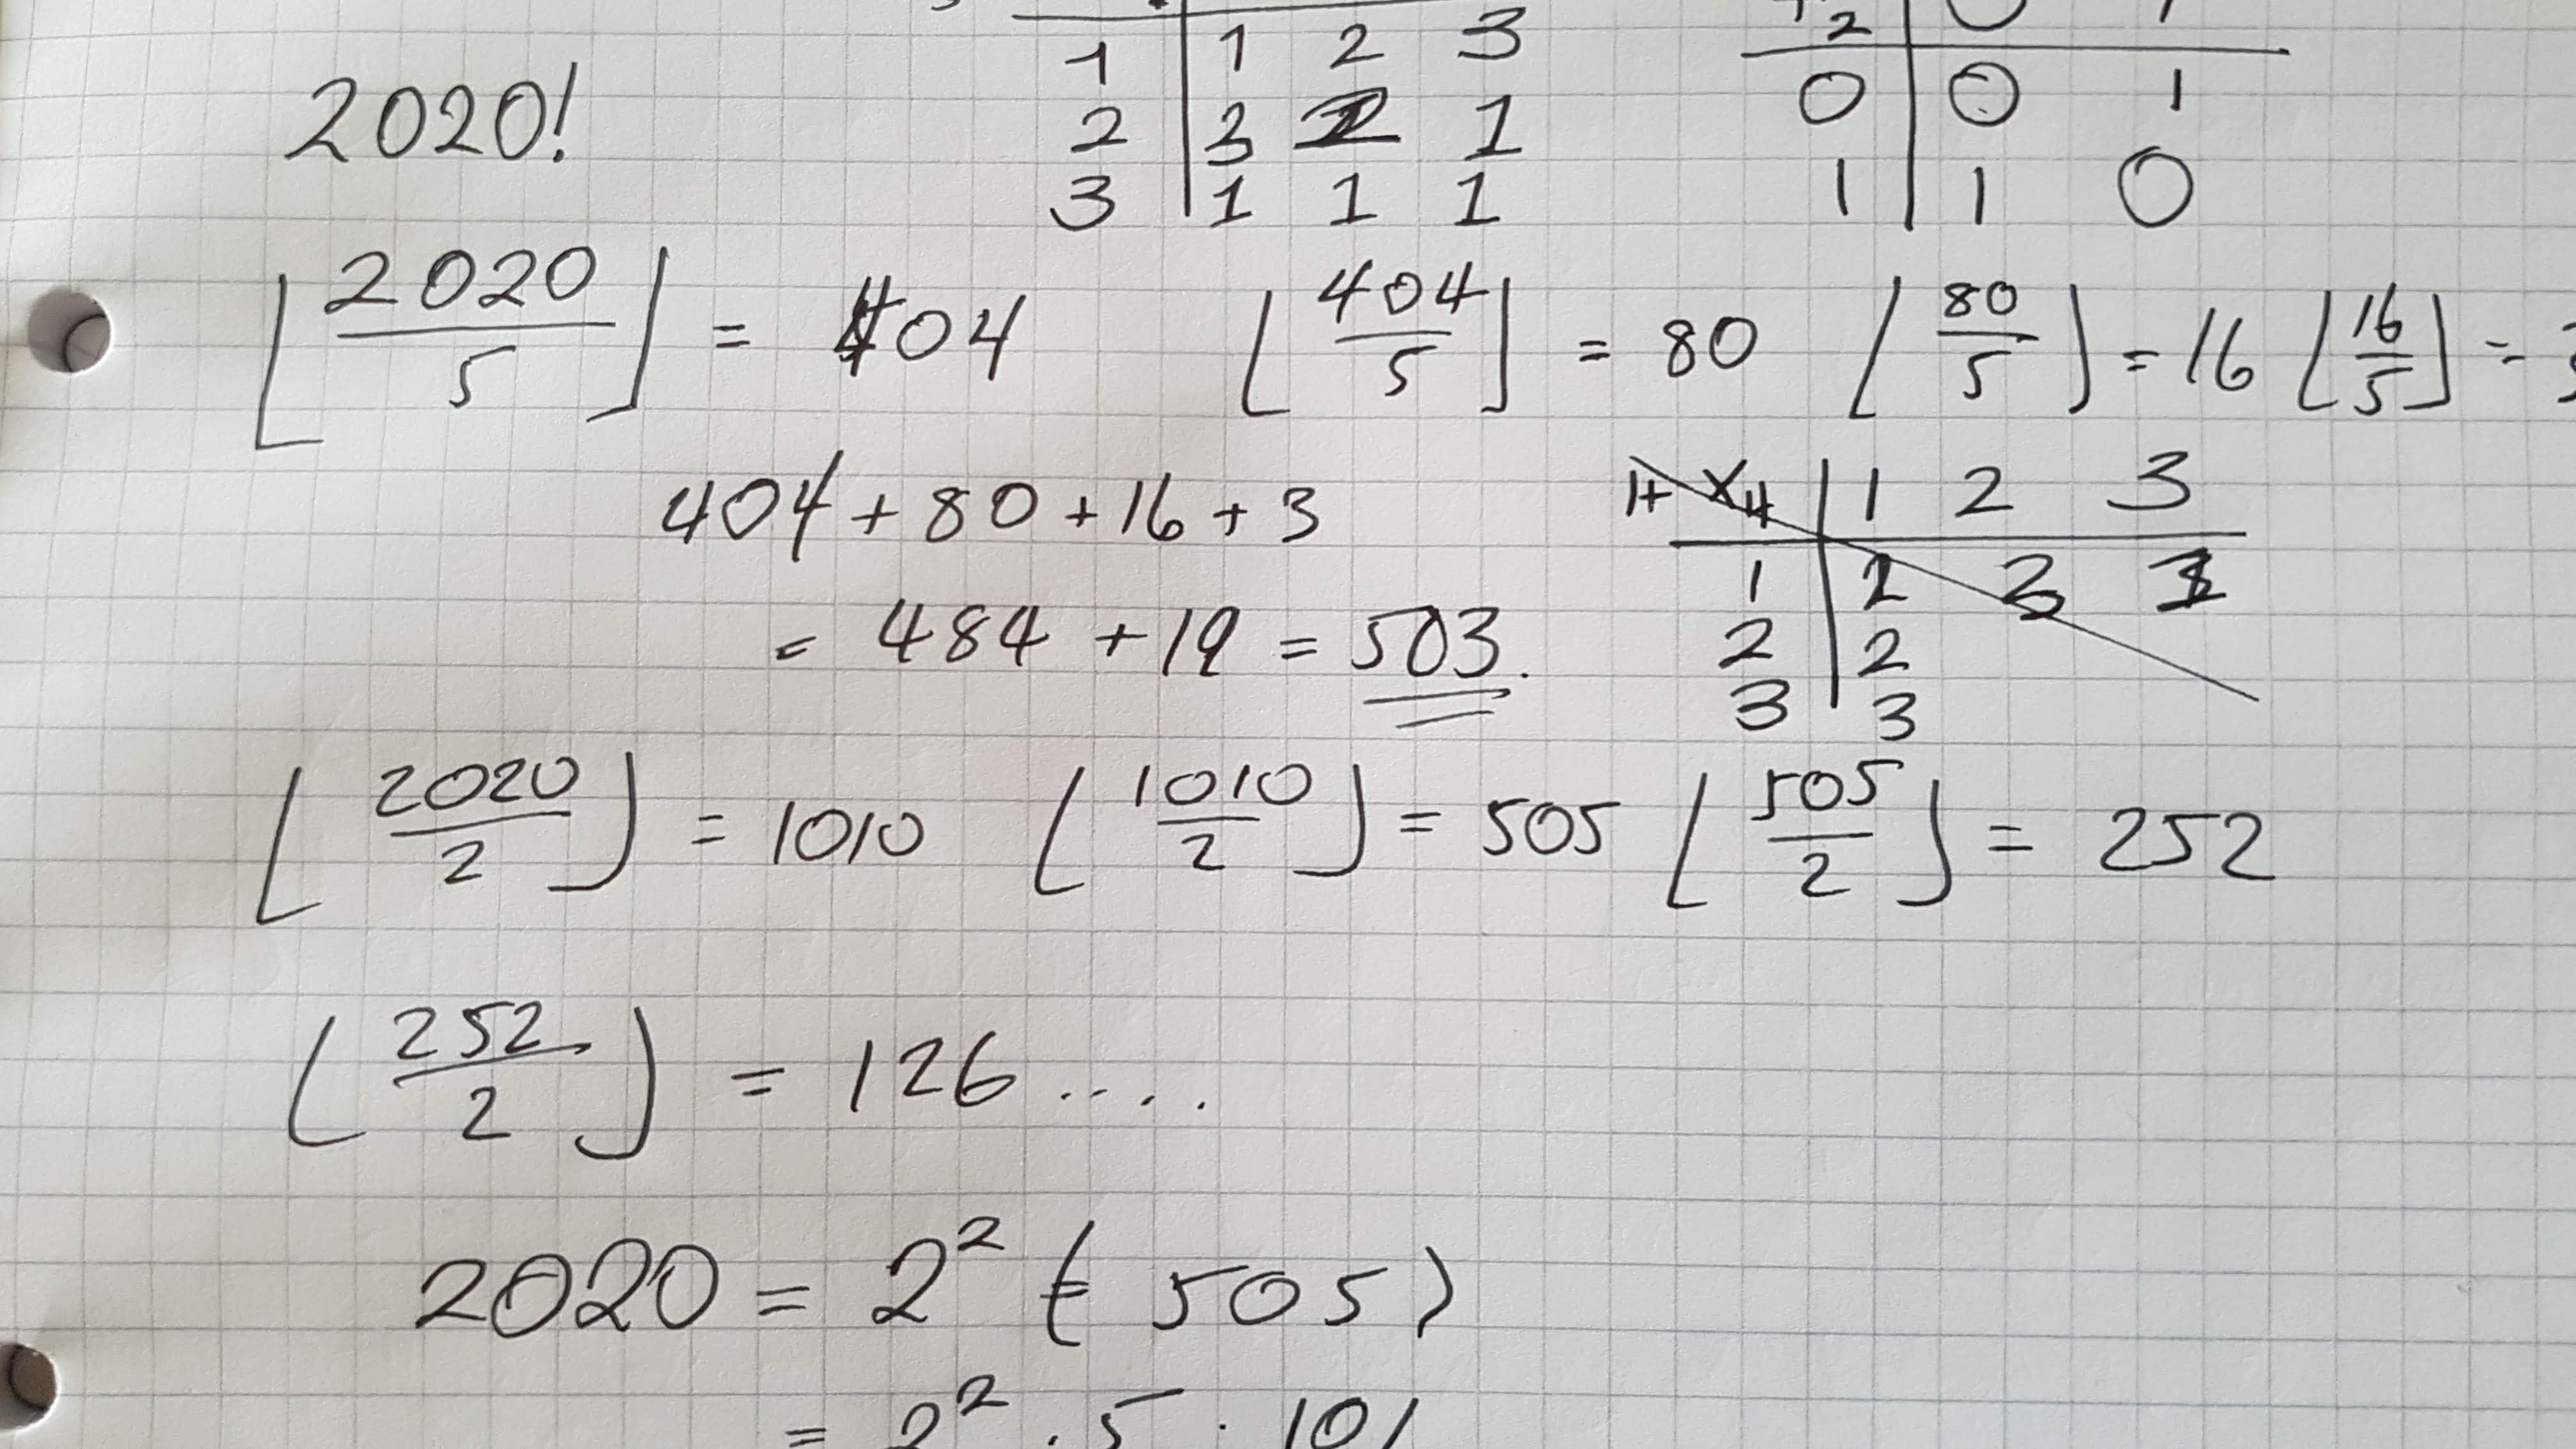 1 2 3
1 1 2 3
2 3 1
3 1 1 1
2 1
0 0 1
1 1 0
2020!
⌊2020/5⌋ = 404 ⌊404/5⌋ = 80 ⌊80/5⌋ = 16 ⌊16/5⌋ = 3
404 + 80 + 16 + 3
= 484 + 19 = 503.
1 2 3
1
2 2
3 3
⌊2020/2⌋ = 1010 ⌊1010/2⌋ = 505 ⌊505/2⌋ = 252
⌊252/2⌋ = 126 .....
2020 = 2² (505)
= 2² · 5 · 101